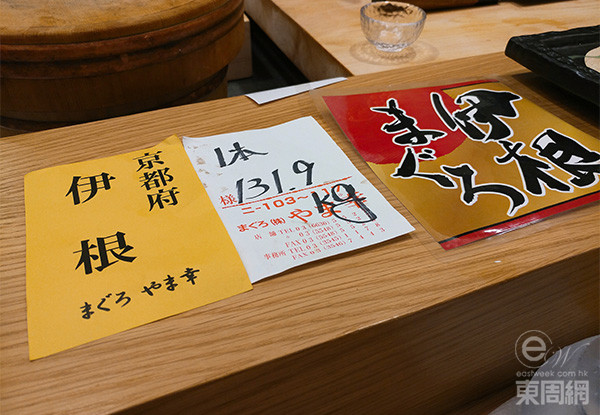 京都府
伊根
まぐろ やま幸
1本
131.9
kg
様
ニ-103~
まぐろ㈱ やま幸
店舗 TEL 03
FAX 03
事務所 TEL 03
FAX 03
伊根
まぐろ
eastweek.com.hk
東周網